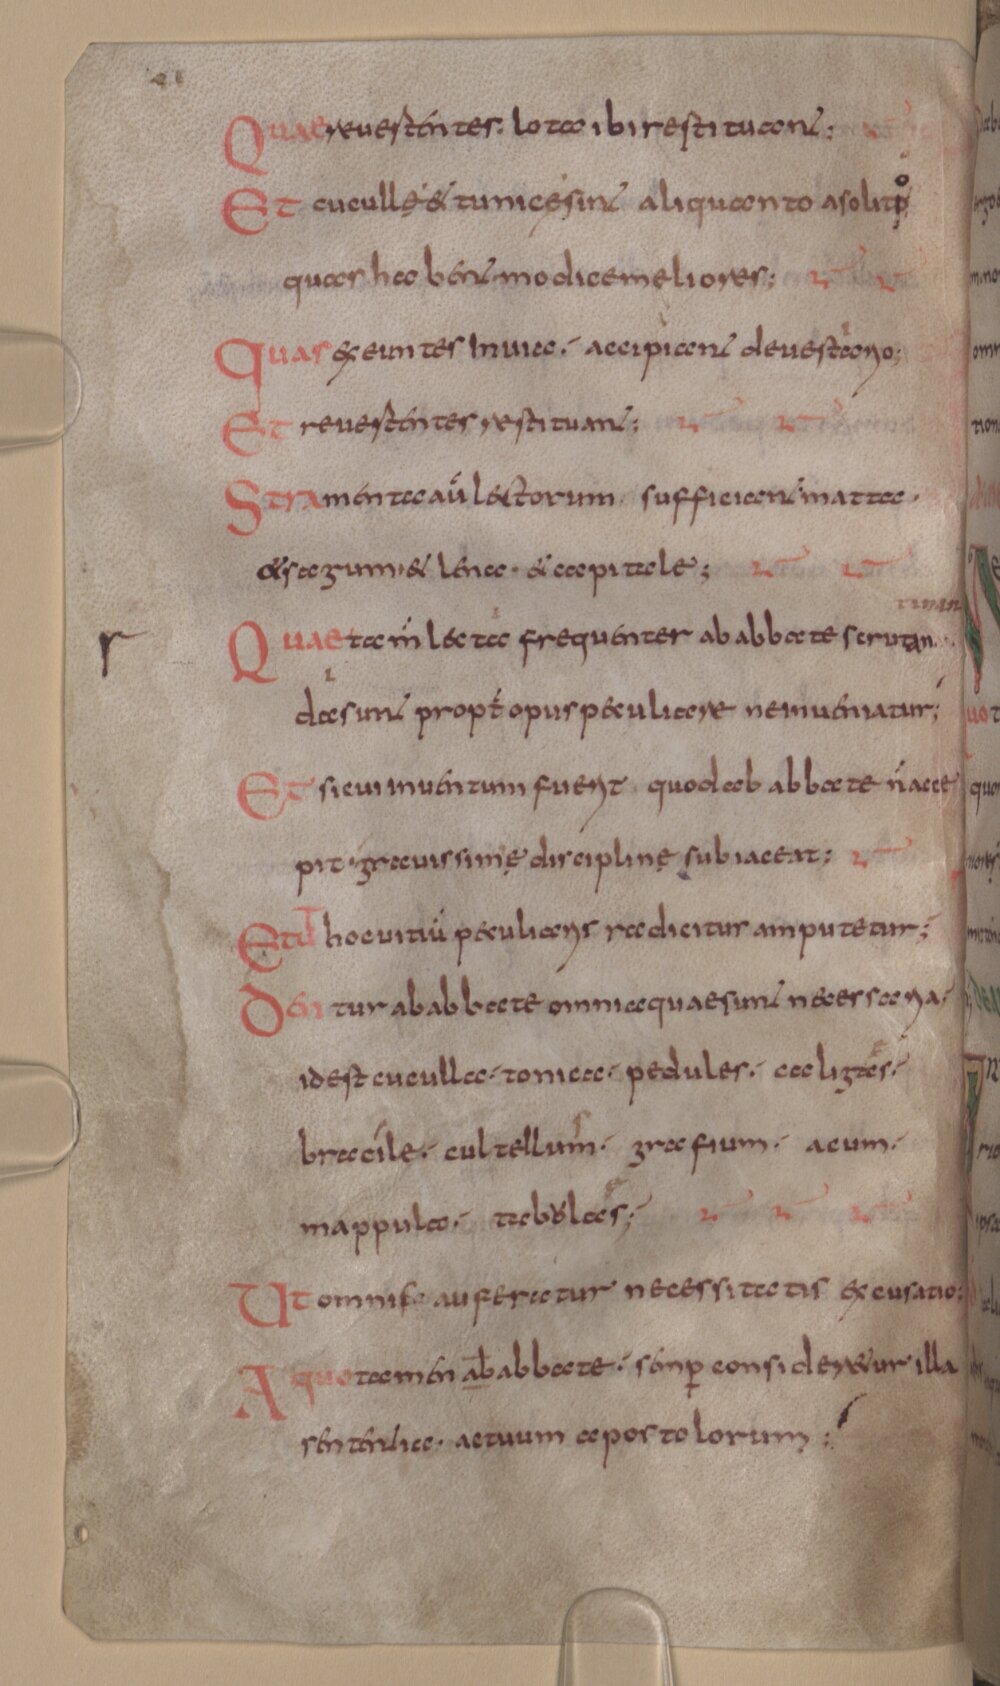 Quae reuestentes. lota ibi restituant;
Et cucullę & tunicę sint aliquanto a solito
quas habent modice meliores;
Quas exeuntes In uia. accipiant de uestiario;
Et reuestentes restituant;
Stramenta aū lectorum. sufficiant matta.
& sagum. & lena. & capitale;
tinan
Quae tam̄ lecta frequenter ab abbate scrutan
da sunt propt̄ opus peculiare ne inueniatur;
r
Et si cui inuentum fuerit quod ab abbate n̄ acce
pit. grauissimę disciplinę subiaceat;
Et ut hoc uitiū peculiaris radicitur amputetur;
Dentur ab abbate omnia quae sunt necessaria.
id est cuculla. tonica. pedules. caligas.
bracile. cultellum. grafium. acum.
mappula. tabulas;
Ut omnis auferatur necessitatis excusatio;
A quo tamen ab abbate. semp̄ consideretur illa
sententia. actuum apostolorum;